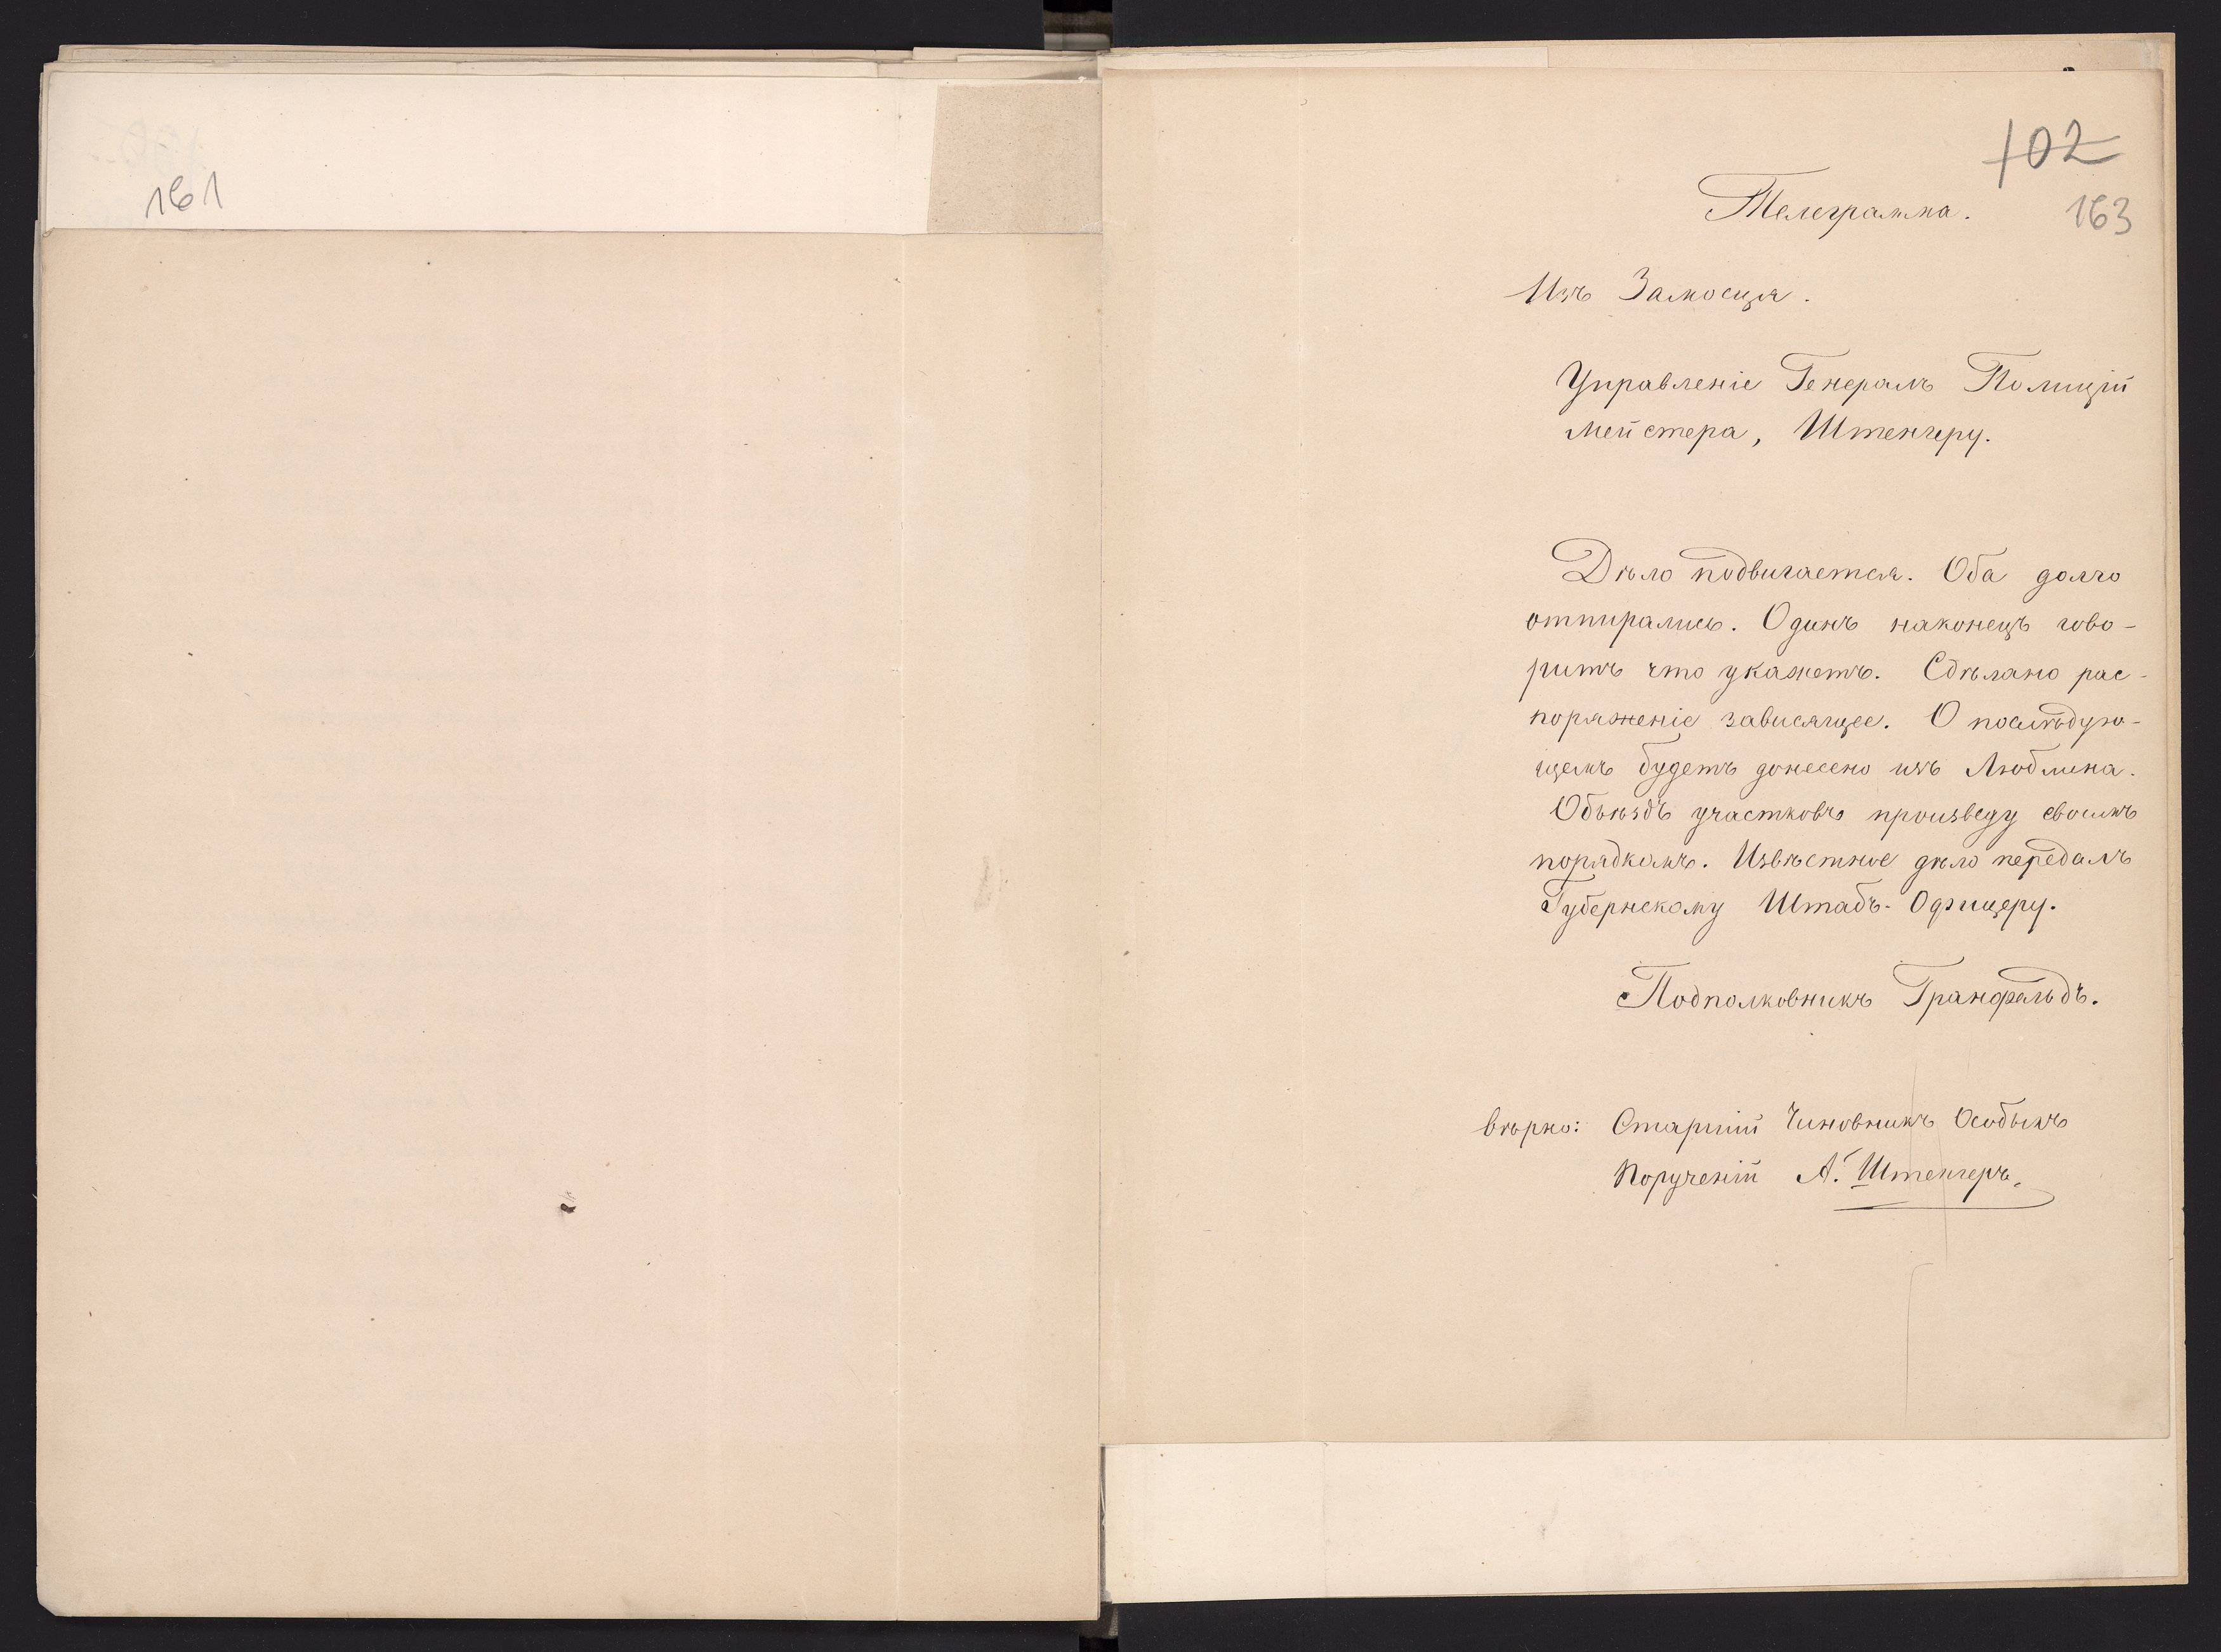 161
102
Телеграмма.
163
Изъ Замосця.
Управленіе Генералъ Полиціи
мейстера, Штенгеру.
Дѣло подвигается. Оба долго
отпирались. Одинъ наконецъ гово-
ритъ что укажетъ. Сдѣлано рас-
поряженіе зависящее. О послѣдую-
щемъ будетъ донесено изъ Люблина.
Объѣздъ участковъ произведу своимъ
порядкомъ. Извѣстное дѣло передалъ
Губернскому Штабъ-Офицеру.
Подполковникъ Гранфельдъ.
Вѣрно: Старшій Чиновникъ Особыхъ
Порученій А. Штенгеръ.